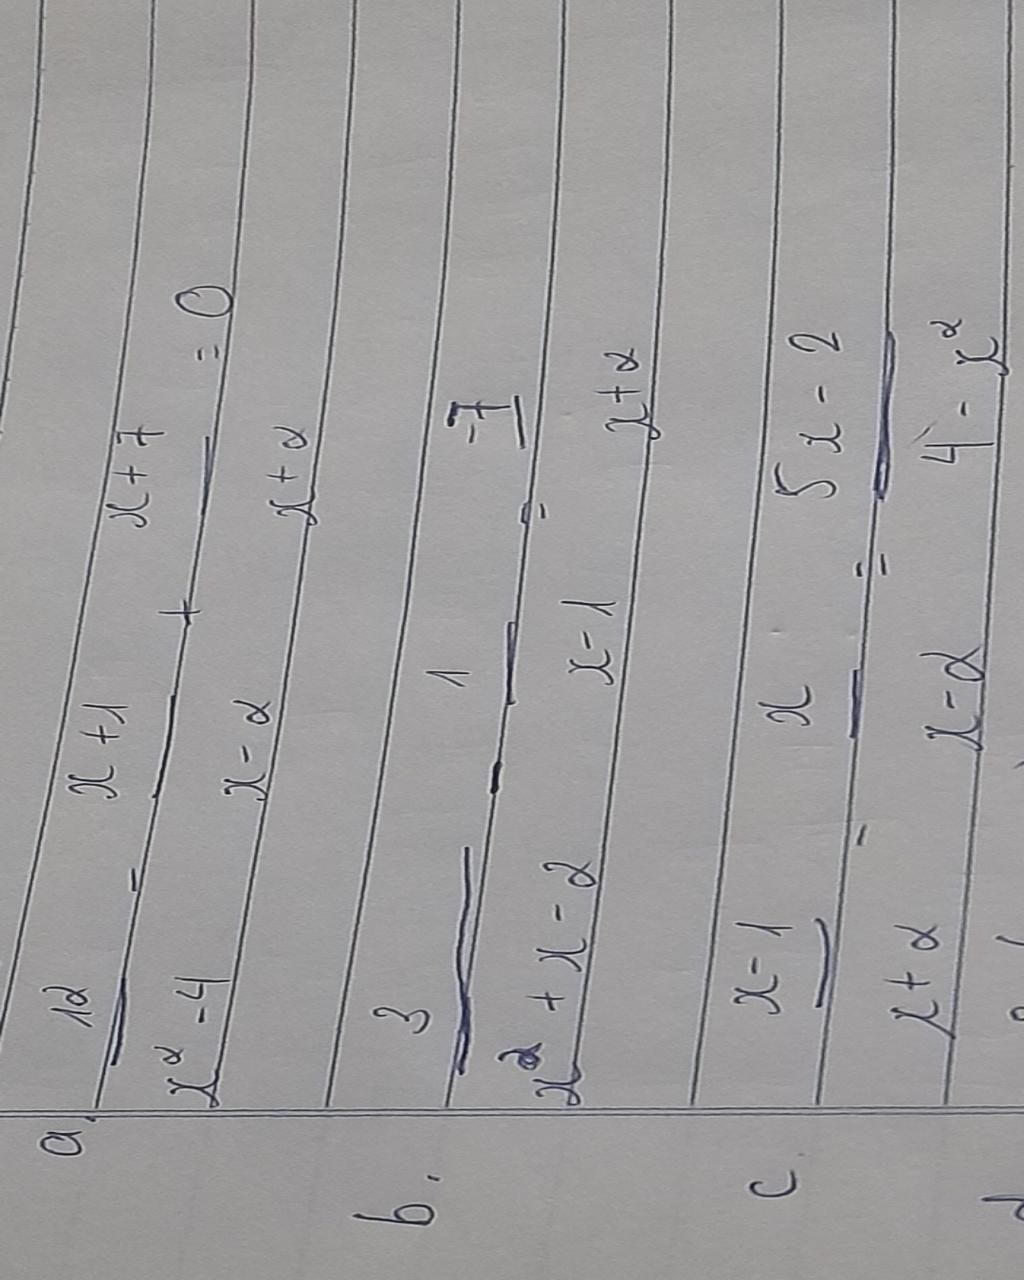 a. 12/(x² - 4) - (x + 1)/(x - 2) + (x + 7)/(x + 2) = 0
b. 3/(x² + x - 2) - 1/(x - 1) = -7/(x + 2)
c. (x - 1)/(x + 2) - x/(x - 2) = (5x - 2)/(4 - x²)